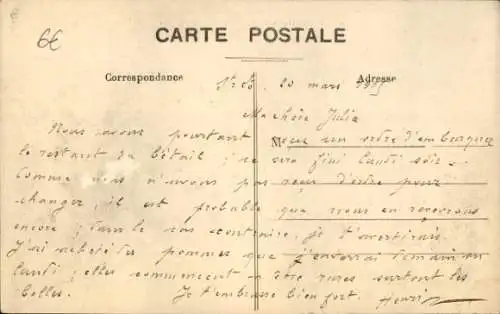 6€
CARTE POSTALE
Correspondance
Adresse
20 mars
Ma chère Julia
Nous avons pourtant reçu un ordre d'embarquer
M
le restant du bétail ; ce sera fini lundi soir.
Comme nous n'avons pas reçu d'ordre pour
changer, il est probable que nous en recevrons
encore ; dans le cas contraire, je t'avertirais.
J'ai acheté des pommes que j'enverrai demain ou
lundi ; elles commencent à être rares surtout les
belles. Je t'embrasse bien fort. Henri